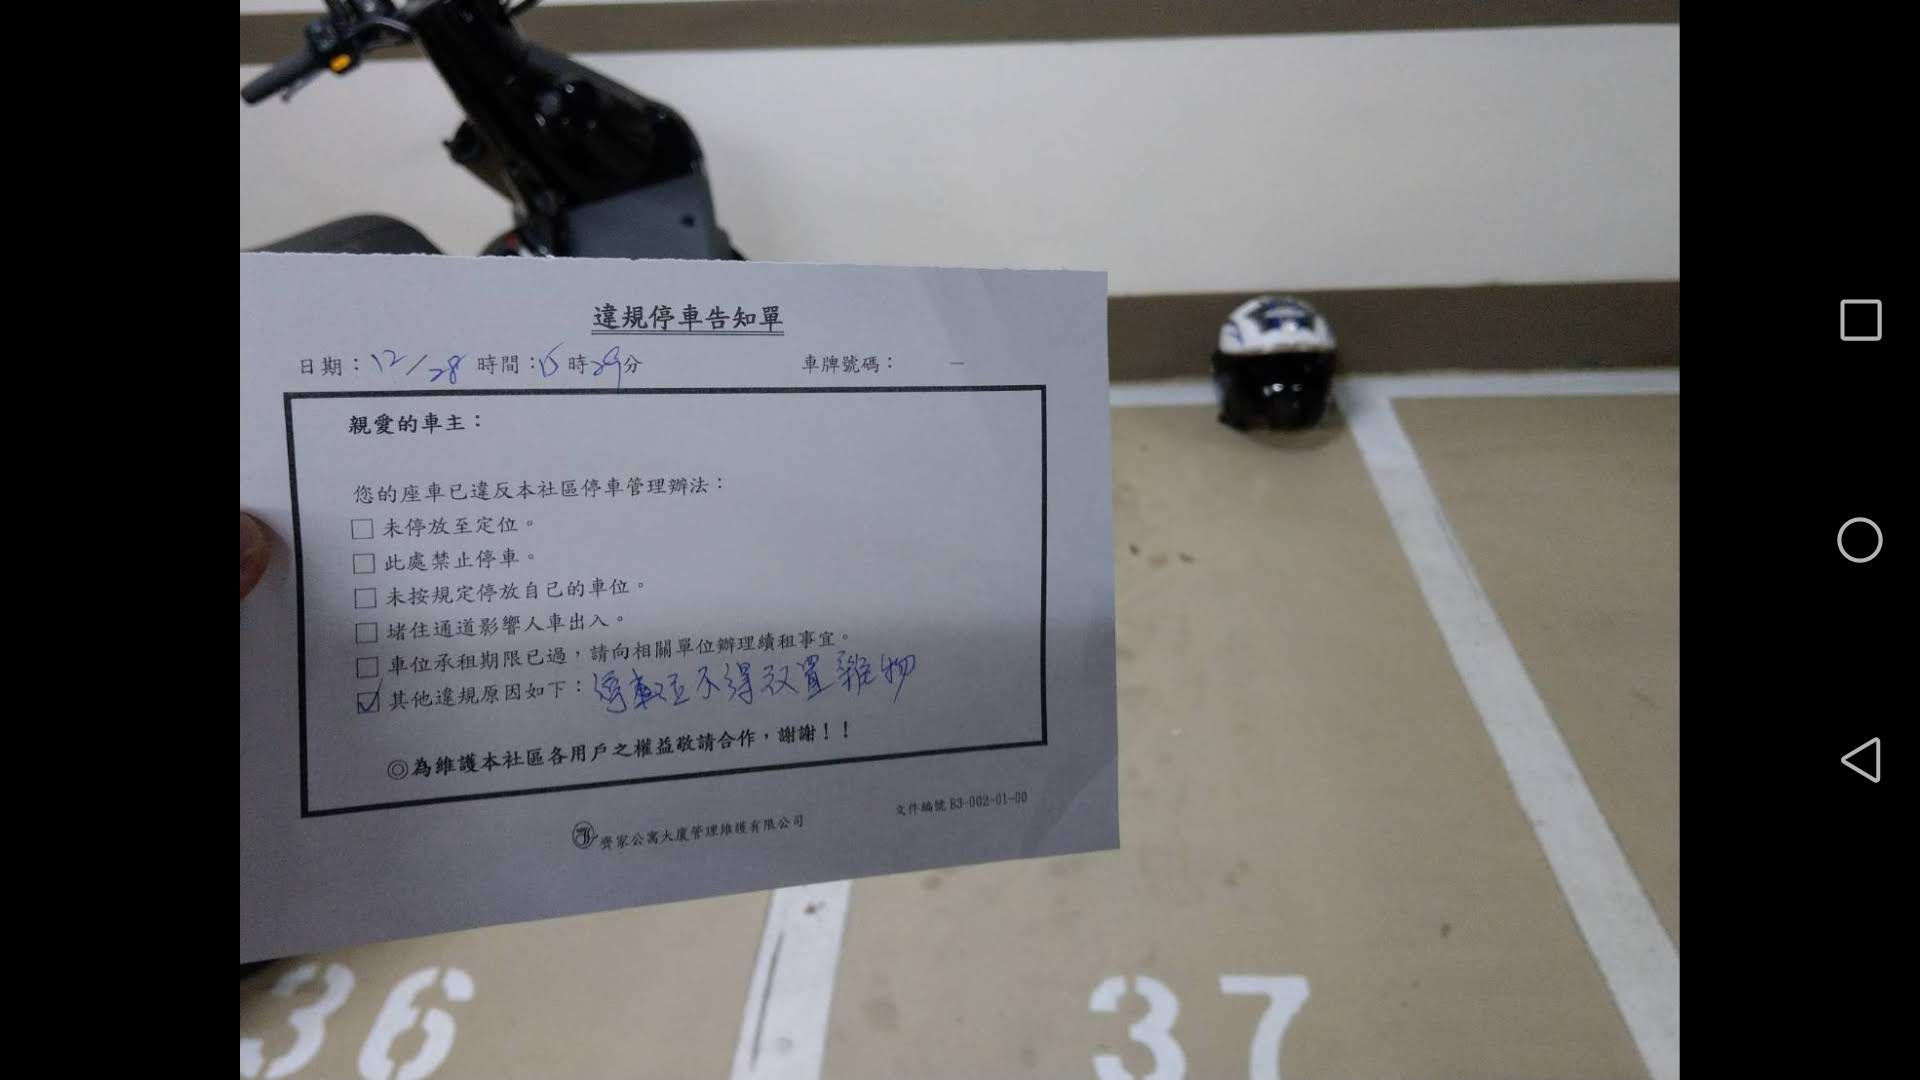 違規停車告知單
日期：12/28 時間：15時29分 車牌號碼： —
親愛的車主：
您的座車已違反本社區停車管理辦法：
□ 未停放至定位。
□ 此處禁止停車。
□ 未按規定停放自己的車位。
□ 堵住通道影響人車出入。
□ 車位承租期限已過，請向相關單位辦理續租事宜。
☑ 其他違規原因如下：停車位不得放置雜物
◎為維護本社區各用戶之權益敬請合作，謝謝！！
齊家公寓大廈管理維護有限公司
文件編號 B3-002-01-00
36
37